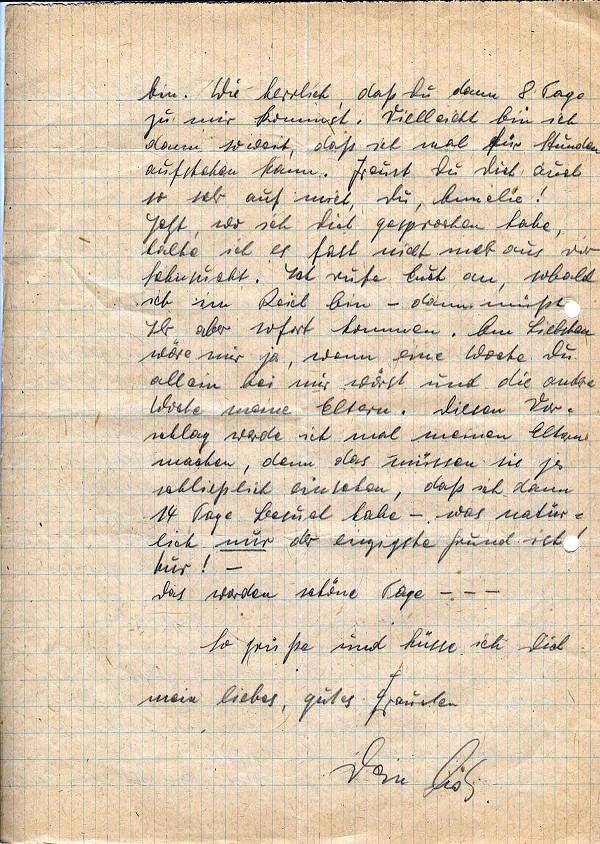 bin. Wie herrlich, daß Du dann 8 Tage
zu mir kommst. Vielleicht bin ich
dann soweit, daß ich mal für Stunden
aufstehen kann. Freust Du Dich auch
so sehr auf mich, Du, Annelie!
Jetzt, wo ich Dich gesprochen habe,
halte ich es fast nicht mehr aus vor
Sehnsucht. Ich rufe Euch an, sobald
ich im Reich bin – dann müßt
Ihr aber sofort kommen. Am Liebsten
wäre mir ja, wenn eine Woche Du
allein bei mir wärst und die andre
Woche meine Eltern. Diesen Vor=
schlag werde ich mal meinen Eltern
machen, denn das müssen sie ja
schließlich einsehen, daß ich dann
14 Tage Besuch habe – was natür=
lich nur der einzigste Grund ist!
nur! –
Das werden schöne Tage – – –
So grüße und küsse ich Dich
mein liebes, gutes Frauchen
Dein